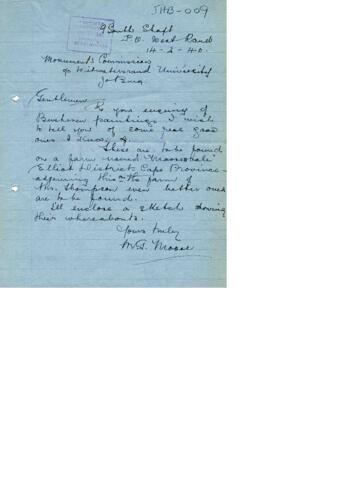 JHB-009
South Shaft
P.O. West Rand
14-2-40.
Monuments Commission
c/o Witwatersrand University
Jo'burg
Gentlemen
To your enquiry of
Bushmen paintings I wish
to tell you of some real good
ones I know of.
These are to be found
on a farm named
Elliot District, Cape Province
adjoining this the farm of
Mr. Thompson even better ones
are to be found.
I'll enclose a sketch showing
their whereabouts.
Yours truly
Moore